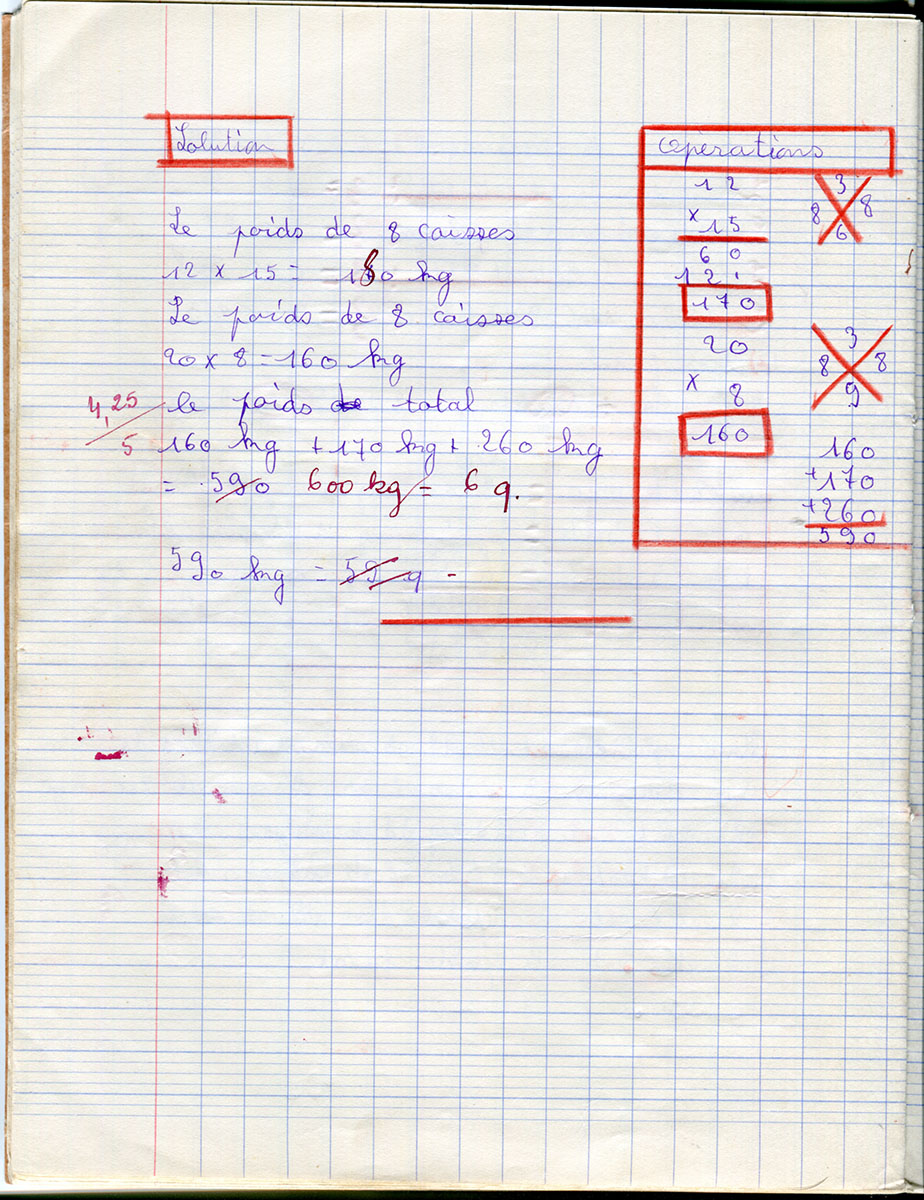 Solution
Le poids de 8 caisses
12 x 15 = 180 kg
Le poids de 8 caisses
20 x 8 = 160 kg
4,25
5
le poids de total
160 kg + 170 kg + 260 kg
= 590 600 kg = 6 q.
590 kg = 59 q
Opérations
12
x 15
60
12.
170
3
8 8
6
20
x 8
160
3
8 8
9
160
+170
+260
590